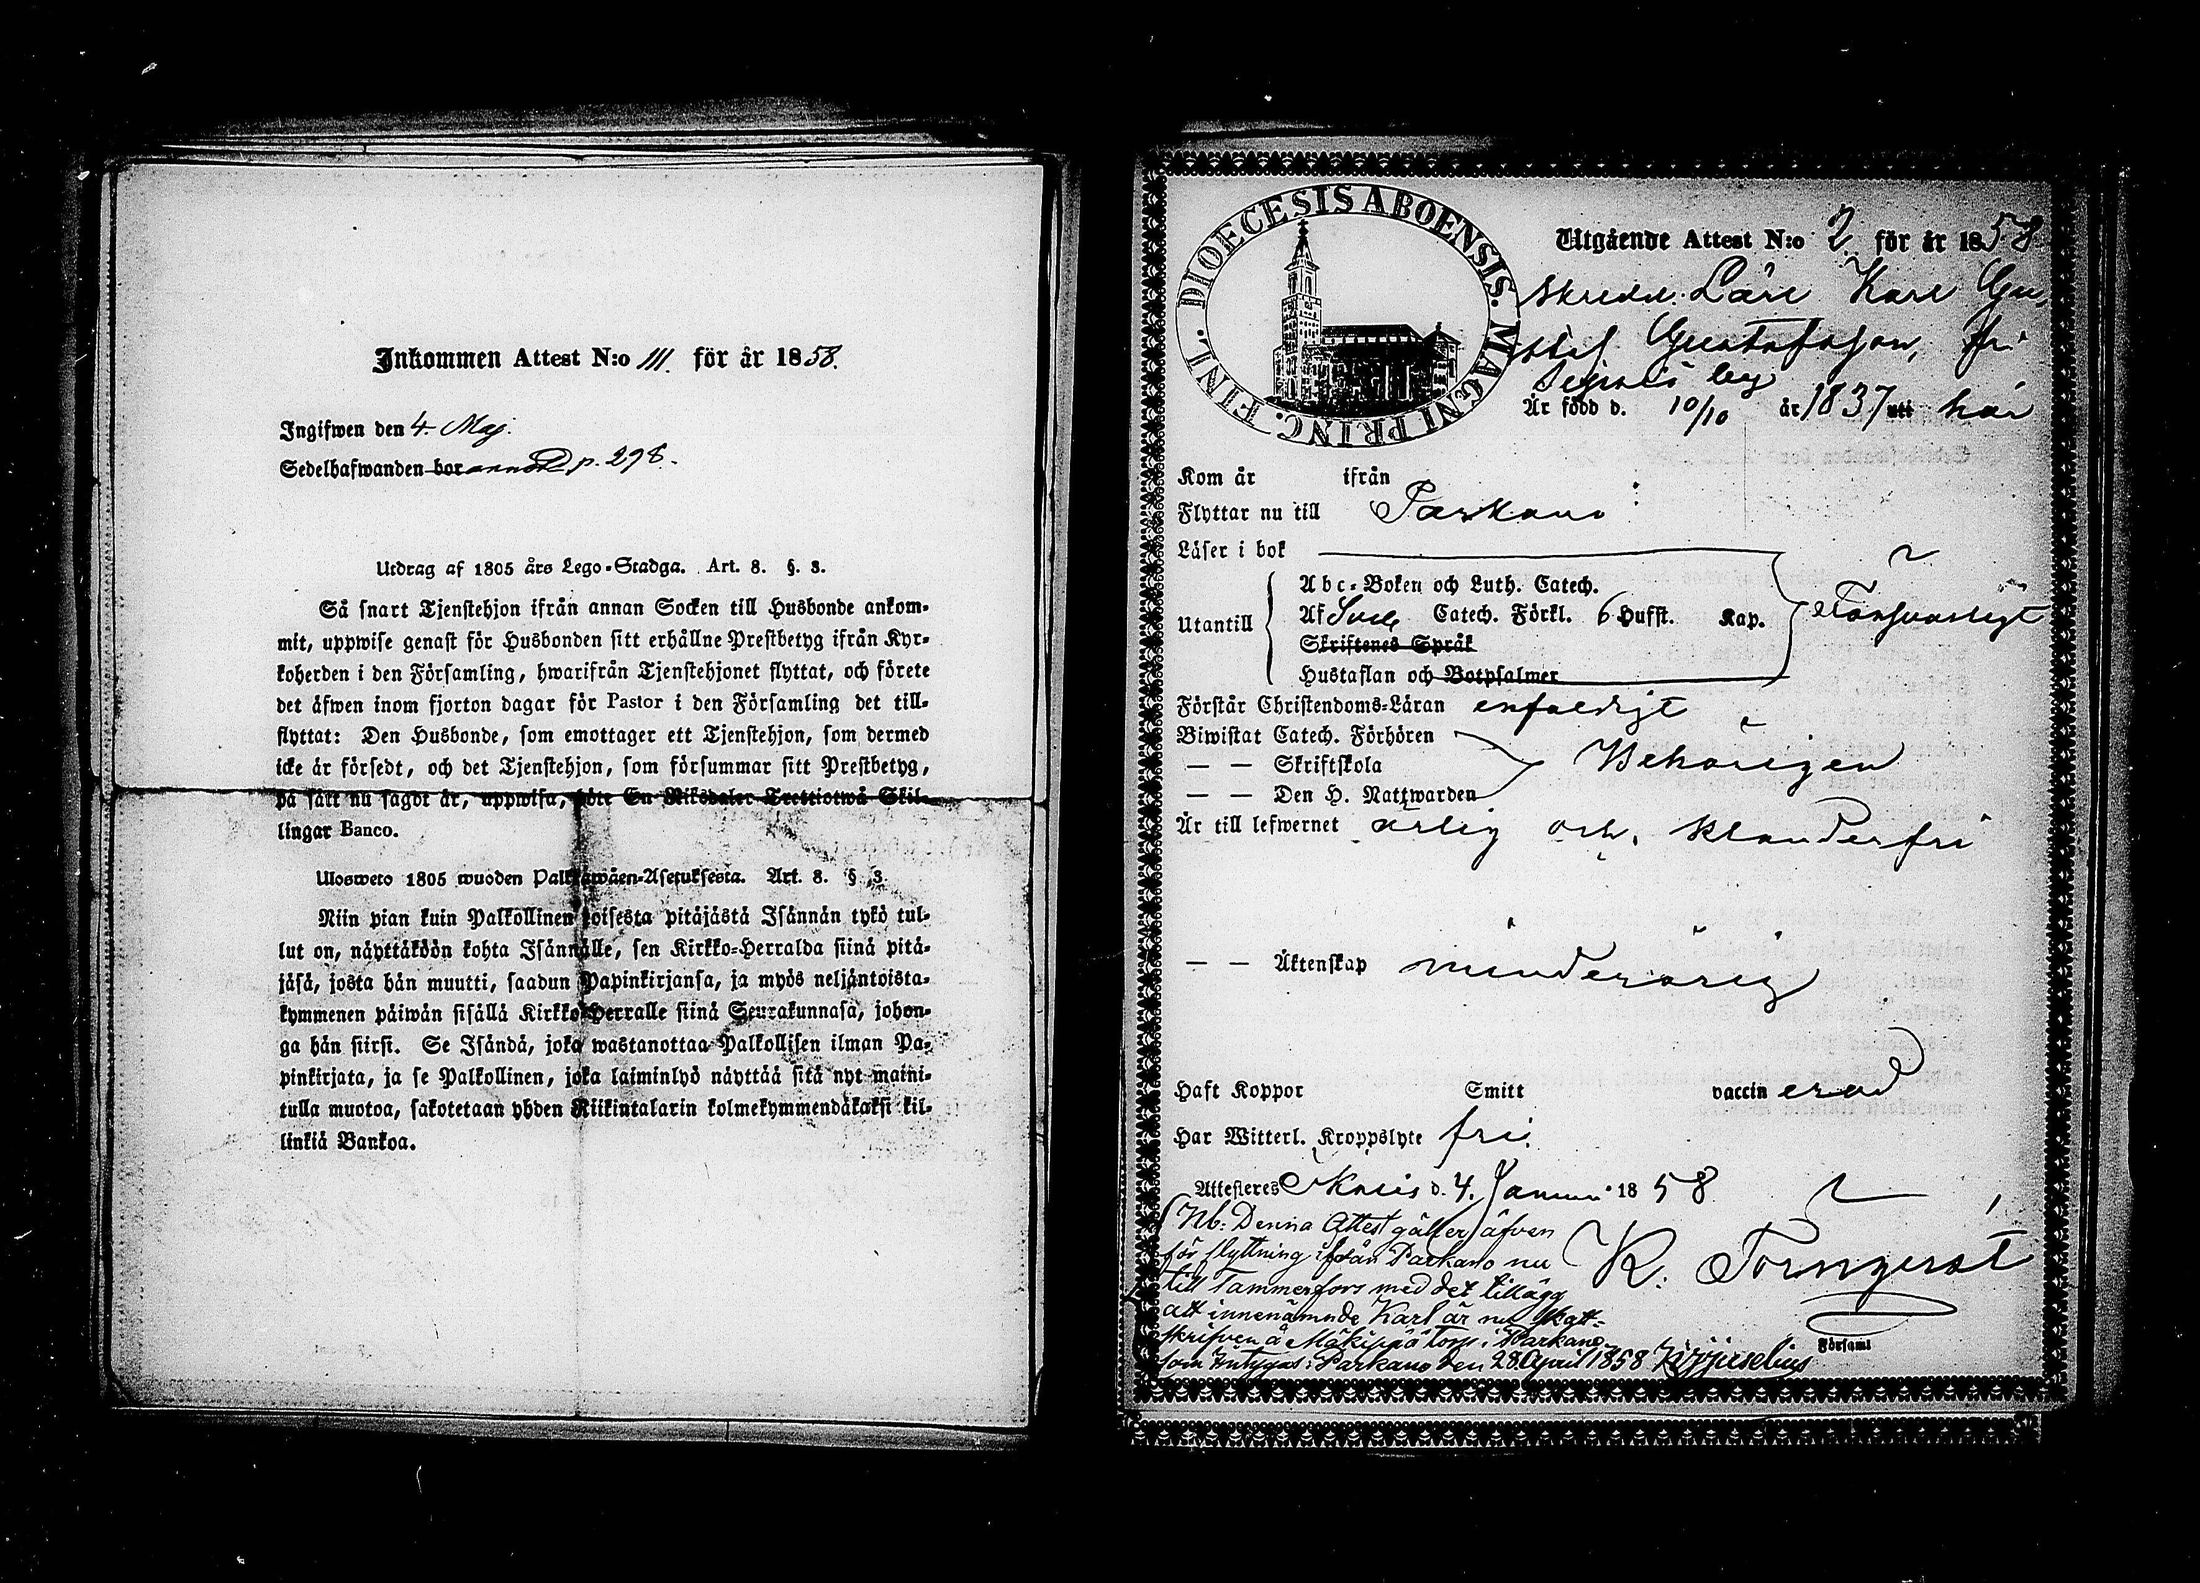 Inkommen Attest N:o 111. för år 1858.
Ingifwen den 4. Maj.
Sedelhafwanden bor annot. p. 298.
Utdrag af 1805 års Lego-Stadga. Art. 8. §. 3.
Så snart Tjenstehjon ifrån annan Socken till Husbonde ankom-
mit, uppwise genast för Husbonden sitt erhållne Prestbetyg ifrån Kyr-
koherden i den Församling, hwarifrån Tjenstehjonet flyttat, och förete
det äfwen inom fjorton dagar för Pastor i den Församling det till-
flyttat: Den Husbonde, som emottager ett Tjenstehjon, som dermed
icke är försedt, och det Tjenstehjon, som försummar sitt Prestbetyg,
på sätt nu sagdt är, uppwisa, böte En Riksdaler Trettiotwå Skil-
lingar Banco.
Ulosweto 1805 wuoden Palkkawäen-Asetuksesta. Art. 8. § 3
Niin pian kuin Palkollinen toisesta pitäjästä Isännän tykö tul-
lut on, näyttäköön kohta Isännälle, sen Kirkko-Herralda siinä pitä-
jäsä, josta hän muutti, saadun Papinkirjansa, ja myös neljäntoista-
kymmenen päiwän sisällä Kirkko-Herralle siinä Seurakunnasa, johon-
ga hän siirsi. Se Isändä, joka wastanottaa Palkollisen ilman Pa-
pinkirjata, ja se Palkollinen, joka laiminlyö näyttää sitä nyt maini-
tulla muotoa, sakotetaan yhden Riikintalarin kolmekymmendäkaksi kil-
linkiä Bankoa.
DIOECESIS ABOENSIS. MAGNI PRINC. FINL.
Utgående Attest N:o 2. för år 1858
Skredd. Lärl Karl Gu-
staf Gustafsson, fr.
by
Är född d. 10/10 år 1837 uti här
Kom år ifrån
Flyttar nu till Parkano
Läser i bok
Abc-Boken och Luth. Catech.
Utantill Af Sveb. Catech. Förkl. 6 Hufst. Kap. Försvarligt
Skriftenes Språk
Hustaflan och Botpsalmer
Förstår Christendoms-Läran enfaldigt
Biwistat Catech. Förhören
— — Skriftskola Behörigen
— — Den H. Nattwarden
Är till lefwernet ärlig och klanderfri
— — Äktenskap minderårig
Haft Koppor Smitt vaccinerad
Har Witterl. Kroppslyte fri.
Attesteras d. 4. Januari 1858
Nb: Denna Attest gäller äfven
för flyttning ifrån Parkano nu
till Tammerfors med det tillägg
att innenämnde Karl är nu skatt-
skrifven å Mäkipää Torp i Parkano
som intygas: Parkano den 28 April 1858
K. Törnqvist
Församl